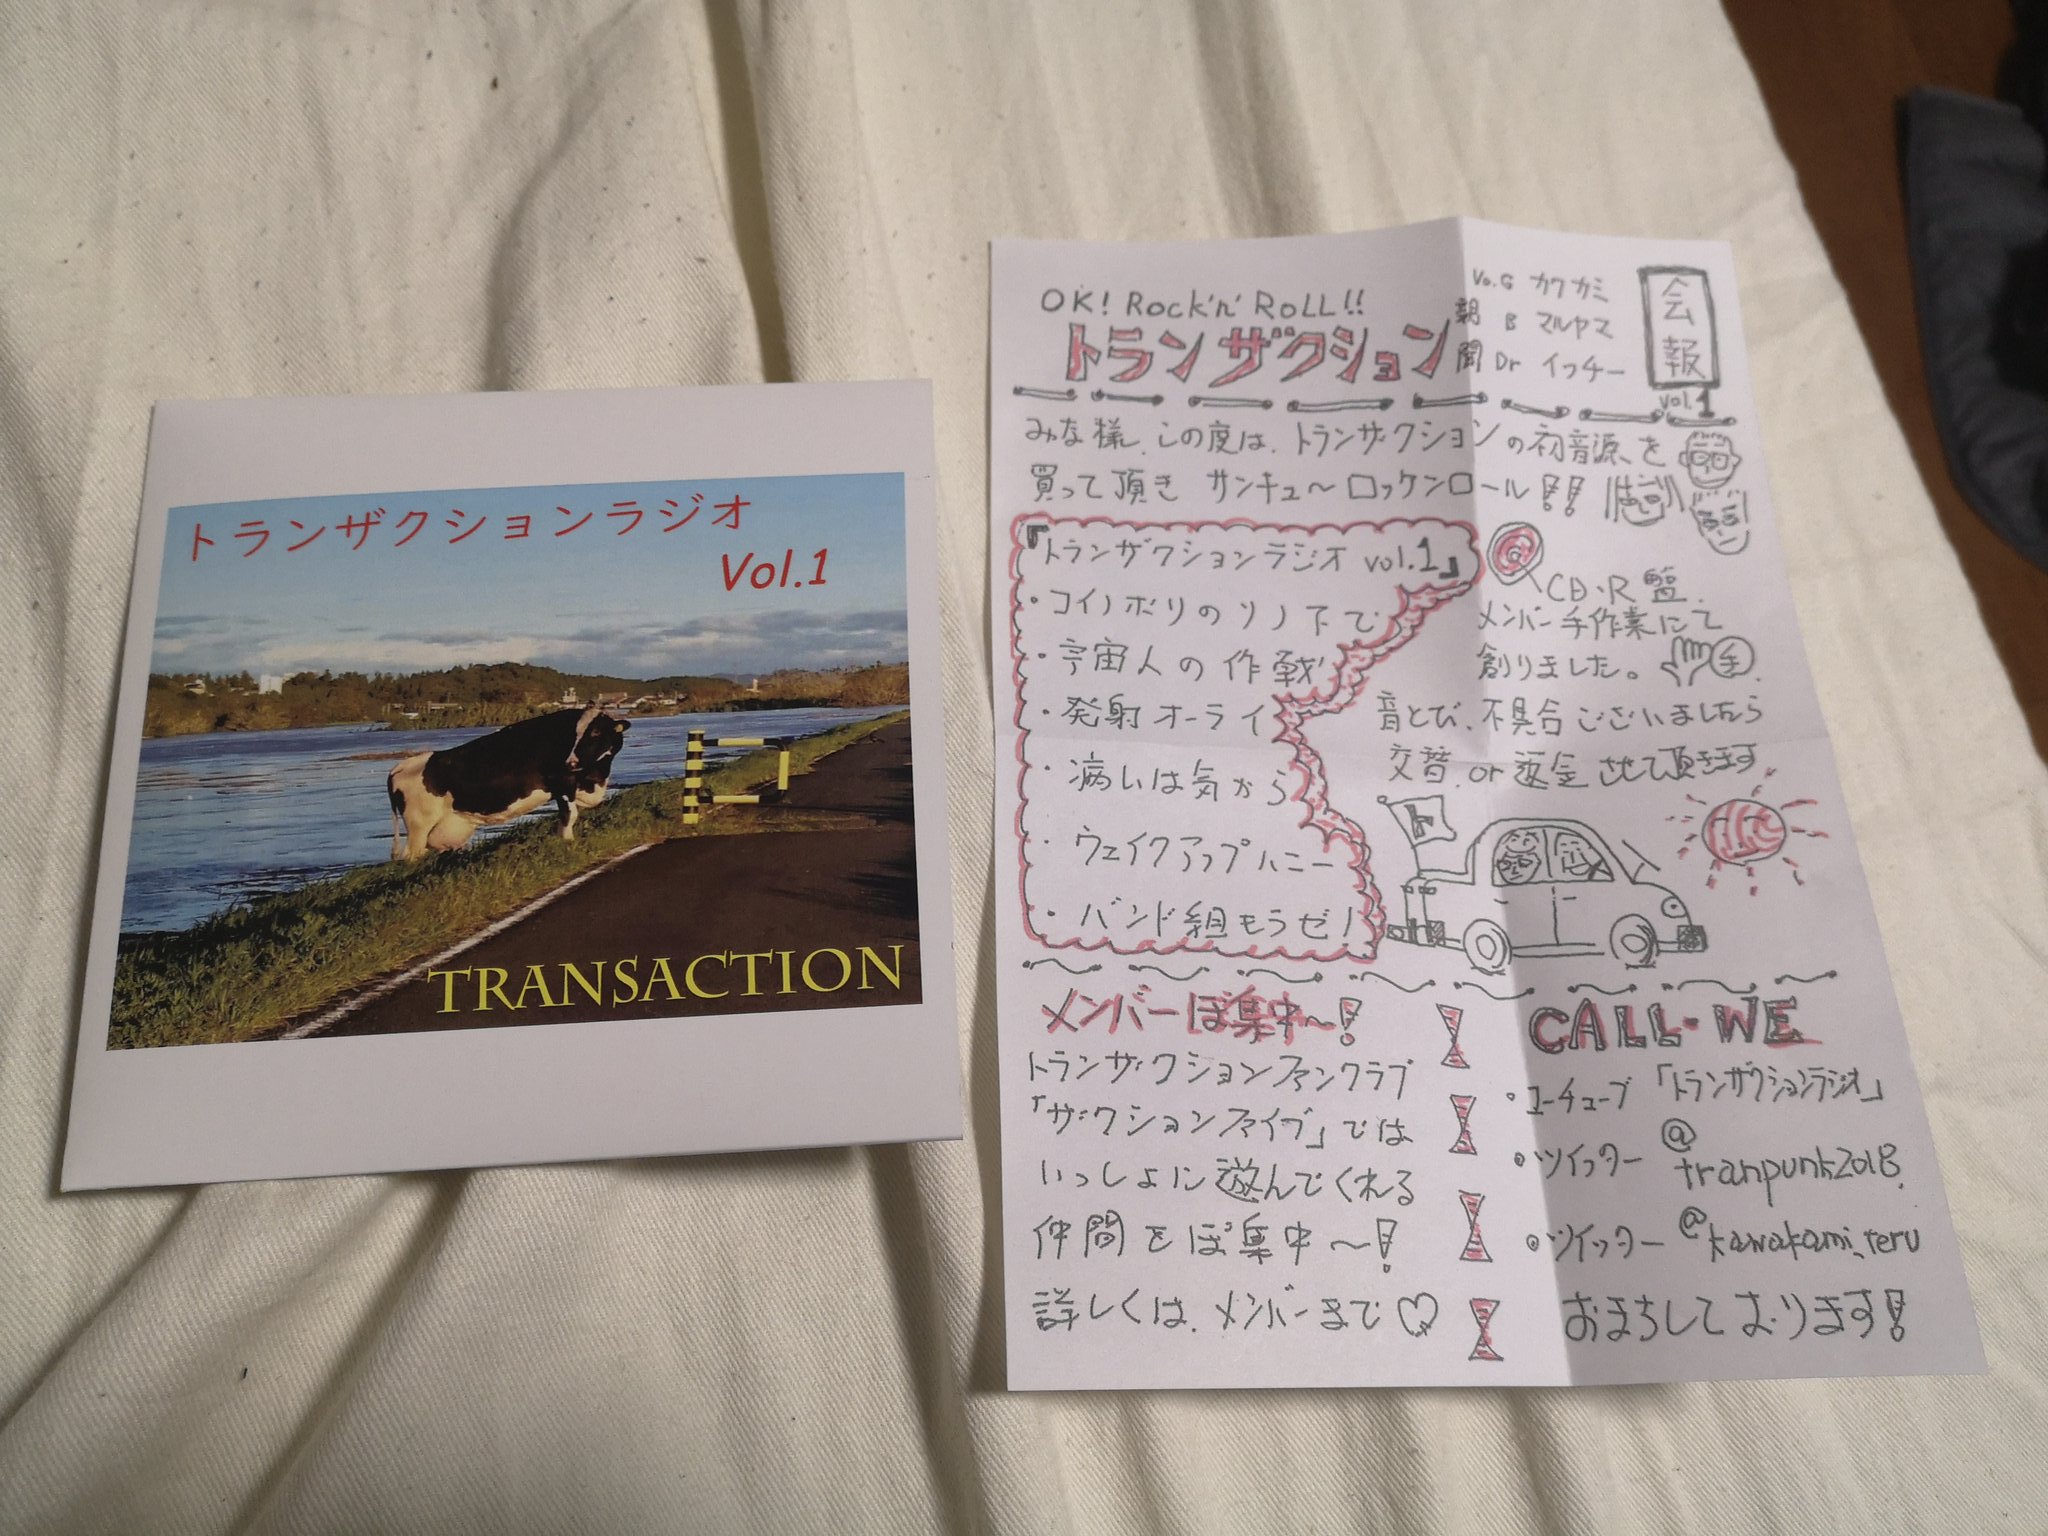 トランザクションラジオ
Vol.1
TRANSACTION
OK! Rock'n' RoLL!!
トランザクション
新聞
Vo.G カワカミ
B マルヤマ
Dr イッチー
会報
vol.1
みな様、この度は、トランザクションの初音源を
買って頂き サンキュ〜ロッケンロール!!
『トランザクションラジオ vol.1』
・コイノボリのソノ下で
・宇宙人の作戦
・発射オーライ
・病いは気から
・ウェイクアップハニー
・バンド組もうゼ!
CD・R盤
メンバー手作業にて
創りました。
手
音とび、不具合ございましたら
交替 or 返金させて頂きます
ト
メンバーぼ集中〜!
トランザクションファンクラブ
「ザクションファイブ」では
いっしょに遊んでくれる
仲間をぼ集中〜!
詳しくは、メンバーまで♡
CALL・WE
・ユーチューブ「トランザクションラジオ」
・ツイッター @tranpunk2018
・ツイッター @kawakami_teru
おまちしております!